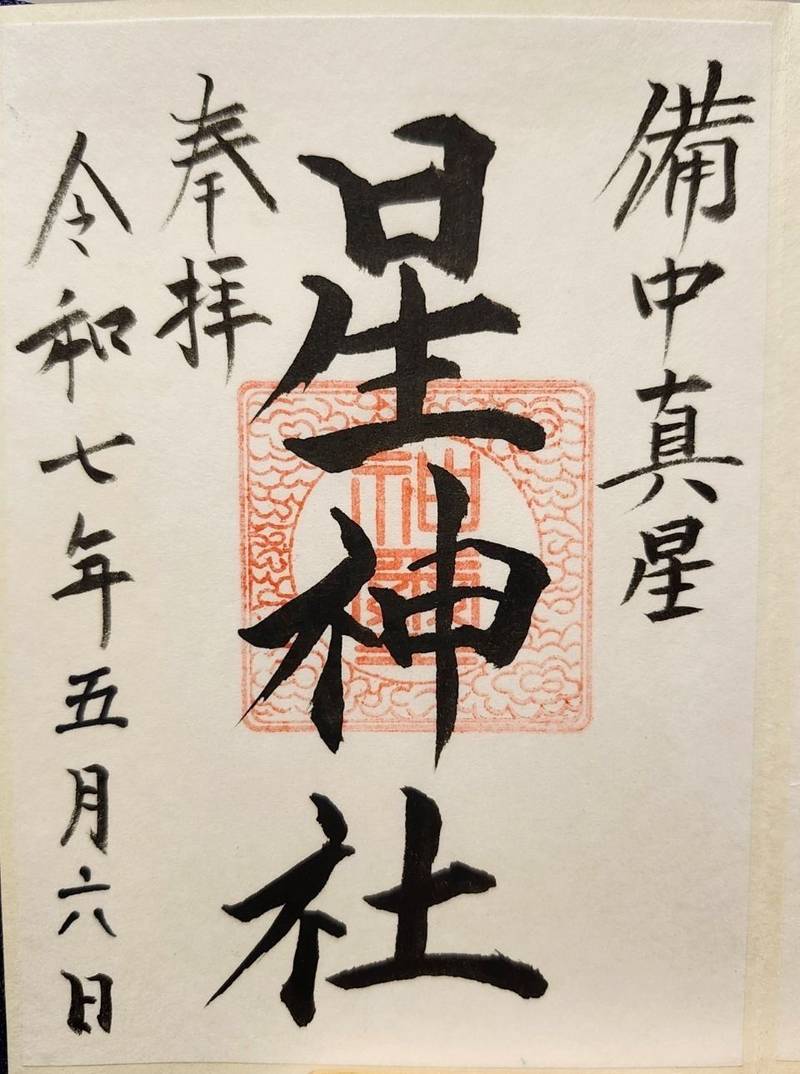 備中真星
星神社
奉拝
令和七年五月六日